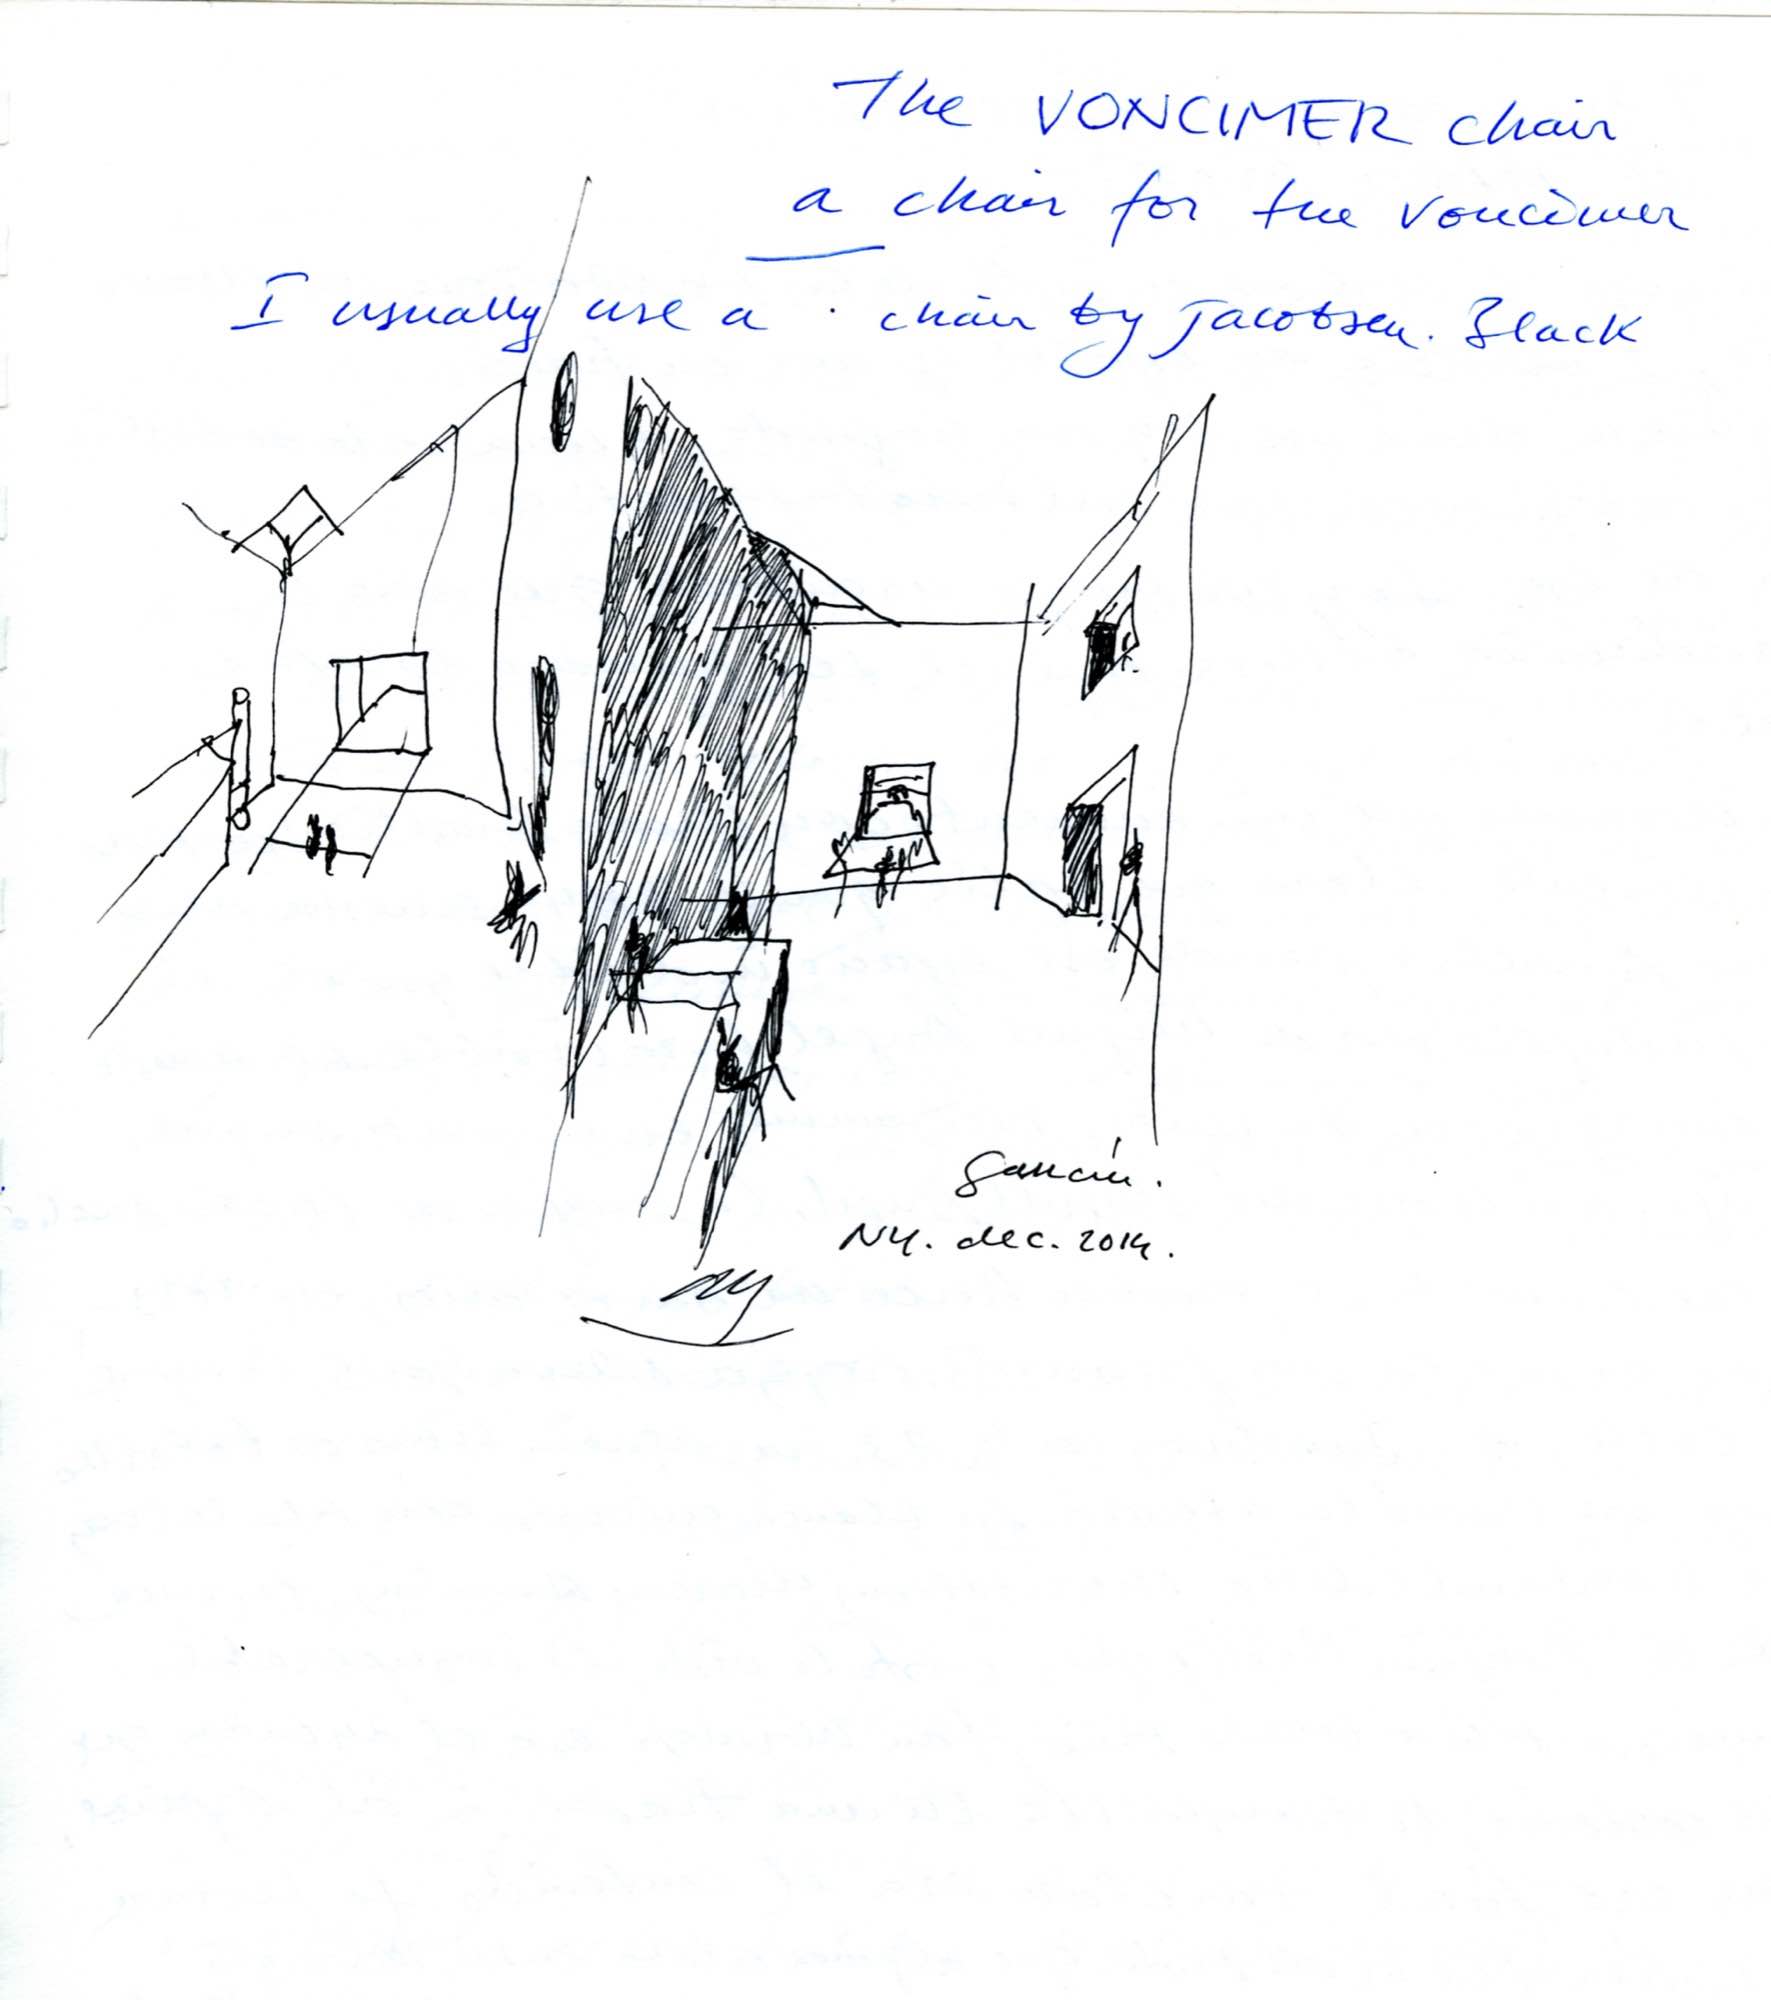 The VONCIMER chair
a chair for the voncimer
I usually use a chair by Jacobsen. Black
NY. dec. 2014.